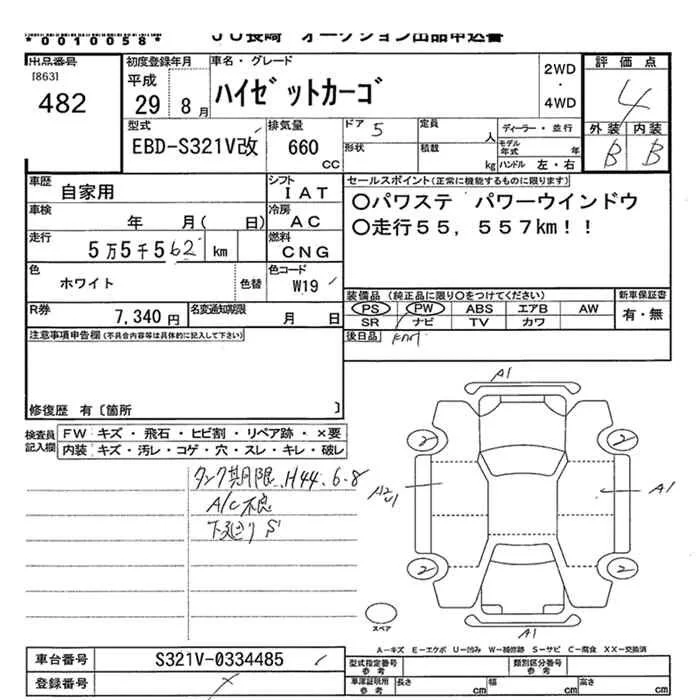 *0010058*
JU長崎 オークション出品申込書
出品番号
[863]
482
初度登録年月
平成
29 8月
車名・グレード
ハイゼットカーゴ
2WD
・
4WD
評価点
4
外装 内装
B B
型式
EBD-S321V改
排気量
660
CC
ドア 5
形状
定員 人
積載 kg
ディーラー・並行
モデル年式 年
ハンドル 左・右
車歴
自家用
シフト
IAT
車検
年 月( 日)
冷房
AC
走行
5万5千562 km
燃料
CNG
色
ホワイト
色替
色コード
W19
R券
7,340円
名変通知期限
月 日
セールスポイント(正常に機能するものに限ります)
〇パワステ パワーウインドウ
〇走行55,557km!!
装備品 (純正品に限り〇をつけてください)
PS PW ABS エアB AW
SR ナビ TV カワ
新車保証書
有・無
後日品
注意事項申告欄(不具合内容等は具体的に記入して下さい)
修復歴 有〔箇所 〕
検査員
記入欄
FW キズ・飛石・ヒビ割・リペア跡・×要
内装 キズ・汚レ・コゲ・穴・スレ・キレ・破レ
タンク期限 H44.6-8
A/C不良
下廻りS
A1
2 2
A2
U1
A1
2 2
A1
スペア
A-キズ E-エクボ U-凹み W-補修跡 S-サビ C-腐食 XX-交換済
車台番号
S321V-0334485
登録番号
型式指定番号
参考
類別区分番号
参考
車庫証明用
参考
長さ cm
幅 cm
高さ cm